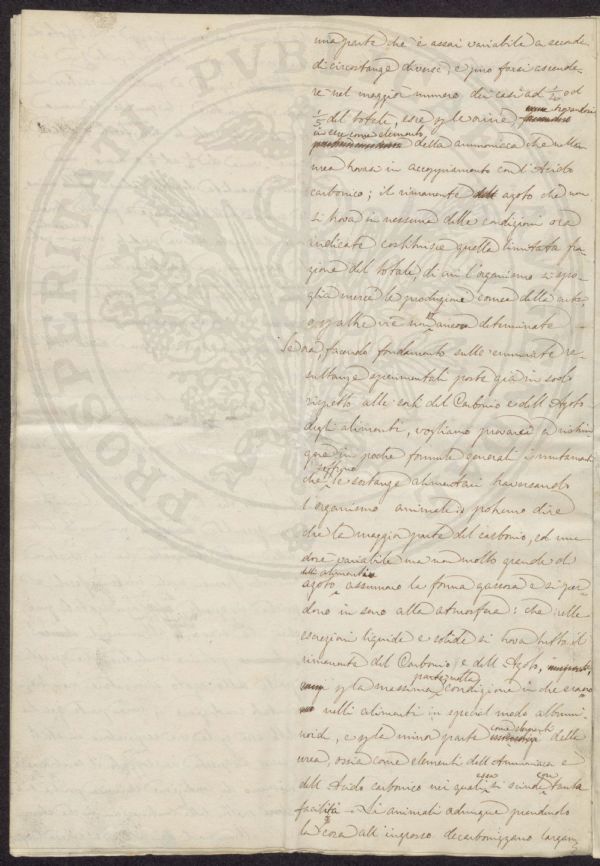 una parte che è assai variabile a seconda
di circostanze diverse, e può forsi ascende-
re nel maggior numero dei casi ad 1/10 od
1/5 del totale, esce per le orine
come elemento,
della ammoniaca che nella
urea trovasi in accoppiamento con l'Acido
carbonico; il rimanente azoto che non
si trova in nessuna delle condizioni ora
indicate costituisce quella limitata fra-
zione del totale, di cui l'organismo si spo-
glia mercè la produzione cornea della cute,
o per altre vie non ancora determinate
Se ora, facendo fondamento sulle enunciate re-
sultanze sperimentali porte già in sodo
rispetto alle sorti del Carbonio e dell'Azoto
degli alimenti, vogliamo provarci a ristrin-
gere in poche formule generali i mutamenti
soffrono
che le sostanze alimentari traversando
l'organismo animale potremo dire
che la maggior parte del carbonio, ed una
dose variabile ma non molto grande di
delli alimenti
azoto assumono la forma gassosa e si per-
dono in seno alla atmosfera: che nelle
escrezioni liquide e solide si trova tutto il
rimanente del Carbonio e dell'Azoto,
per la massima condizione in che erano
nelli alimenti in special modo albumi-
noidi, e per la minor parte come elementi della
urea, ossia come elementi dell'Ammoniaca e
dell'Acido carbonico nei quali essa si scinde con tanta
facilità. Li animali adunque prendendo
la cosa all'ingrosso decarbonizzano largam
PROSPERITATI PVBLICAE